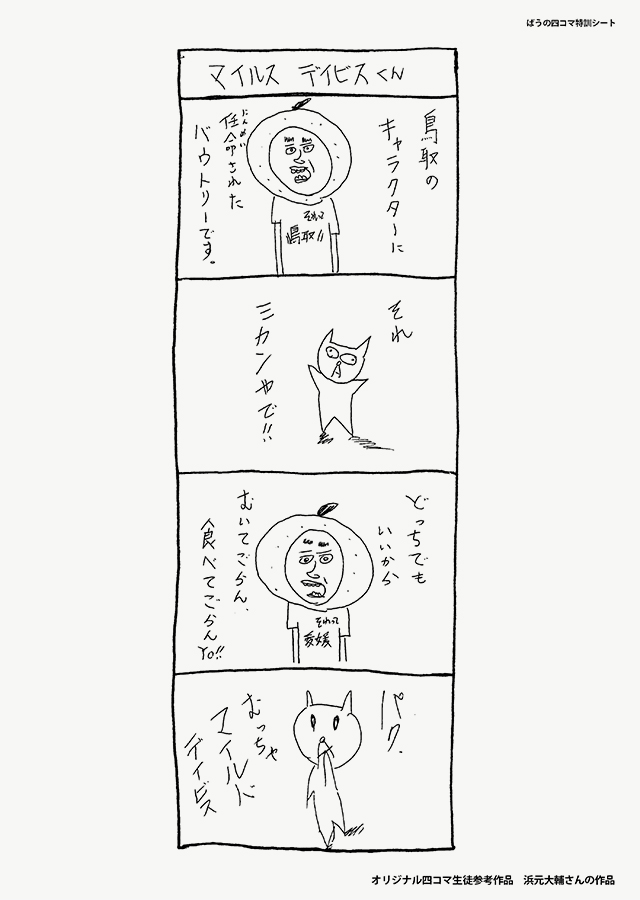 ばうの四コマ特訓シート
マイルス デイビスくん
鳥取の
キャラクターに
任命された
にんめい
バウトリーです。
それって
鳥取!!
それ
ミカンやで!!
どっちでも
いいから
むいてごらん、
食べてごらんYo!!
それって
愛媛
パク、
むっちゃ
マイルド
デイビス
オリジナル四コマ生徒参考作品　浜元大輔さんの作品